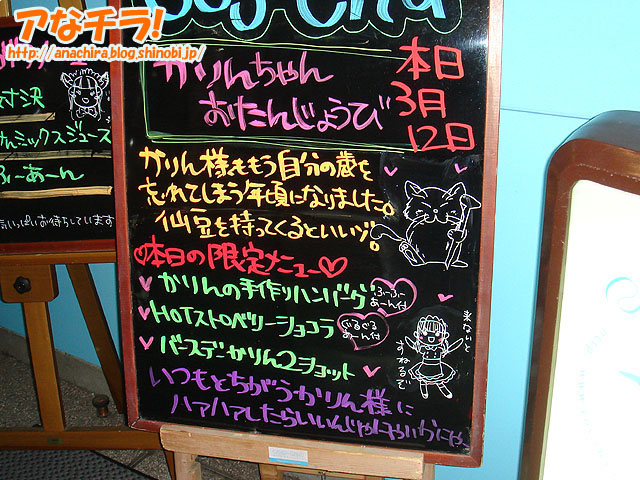 アなチラ!
http://anachira.blog.shinobi.jp/
かりんちゃん
おたんじょうび
本日
3月
12日
かりん様ももう自分の歳を
忘れてしまう年頃になりました。
仙豆を持ってくるといいゾ。
本日の限定メニュー
かりんの手作りハンバーグ
ふーふー
あーん付
HOTストロベリーショコラ
ぐるぐる
あーん付
バースデーかりん2ショット
来ないと
すねるで
いつもとちがうかりん様に
ハァハァしたらいいんじゃにゃいかにゃ。
対決
けんミックスジュース
ふーあーん
お待ちしています